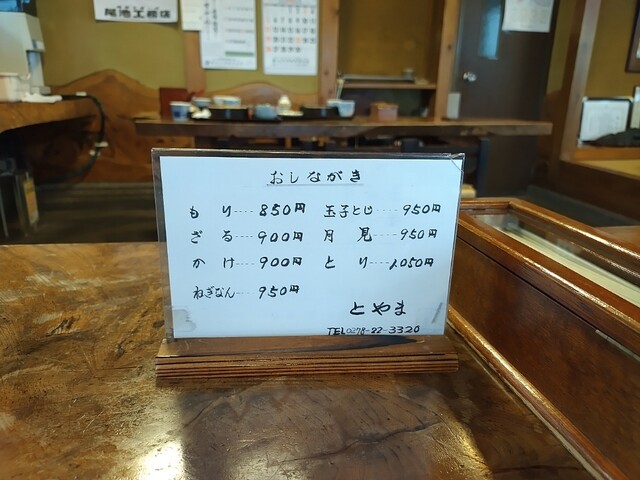 尾池工務店
おしながき
もり----850円 玉子とじ----950円
ざる----900円 月見----950円
かけ----900円 とり----1,050円
ねぎなん----950円
とやま
TEL0278-22-3320